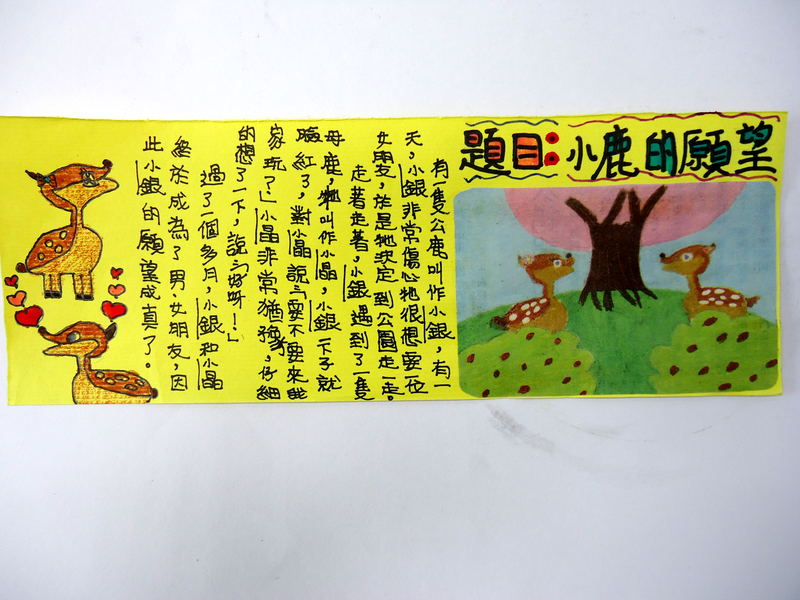 題目：小鹿的願望
有一隻公鹿叫作小銀，有一
天，小銀非常傷心牠很想要一位
女朋友，於是牠決定到公園走一走。
走著走著，小銀遇到了一隻
母鹿，牠叫作小晶，小銀一下子就
臉紅了，對小晶說：「要不要來我
家玩？」小晶非常猶豫，仔細
的想了一下，說：「好呀！」
過了一個多月，小銀和小晶
終於成為了男、女朋友，因
此小銀的願望成真了。